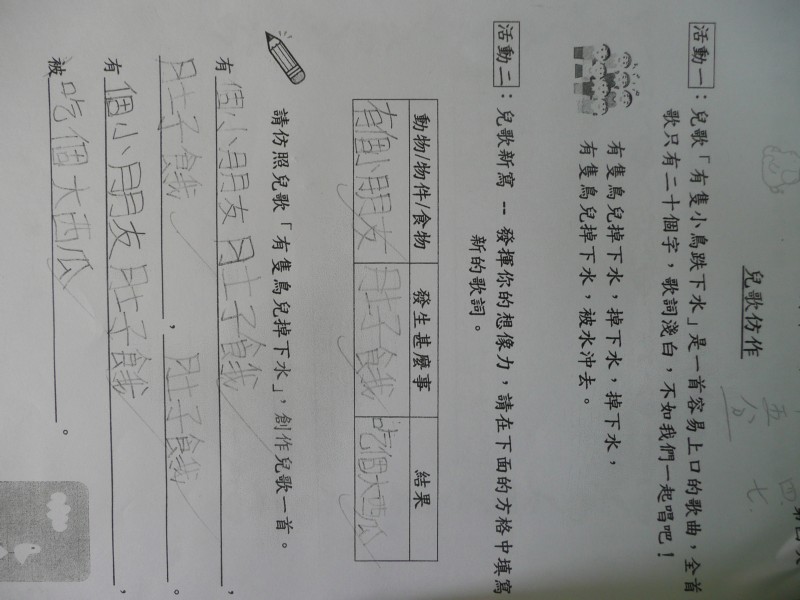 兒歌仿作
五分
四
七
活動一：兒歌「有隻小鳥跌下水」是一首容易上口的歌曲，全首
歌只有二十個字，歌詞淺白，不如我們一起唱吧！
有隻鳥兒掉下水，掉下水，掉下水，
有隻鳥兒掉下水，被水沖去。
活動二：兒歌新寫 -- 發揮你的想像力，請在下面的方格中填寫
新的歌詞。
動物/物件/食物 發生甚麼事 結果
有個小朋友 肚子餓 吃個大西瓜
請仿照兒歌「有隻鳥兒掉下水」，創作兒歌一首。
有個小朋友肚子餓，
肚子餓，肚子餓。
有個小朋友肚子餓，
被吃個大西瓜。